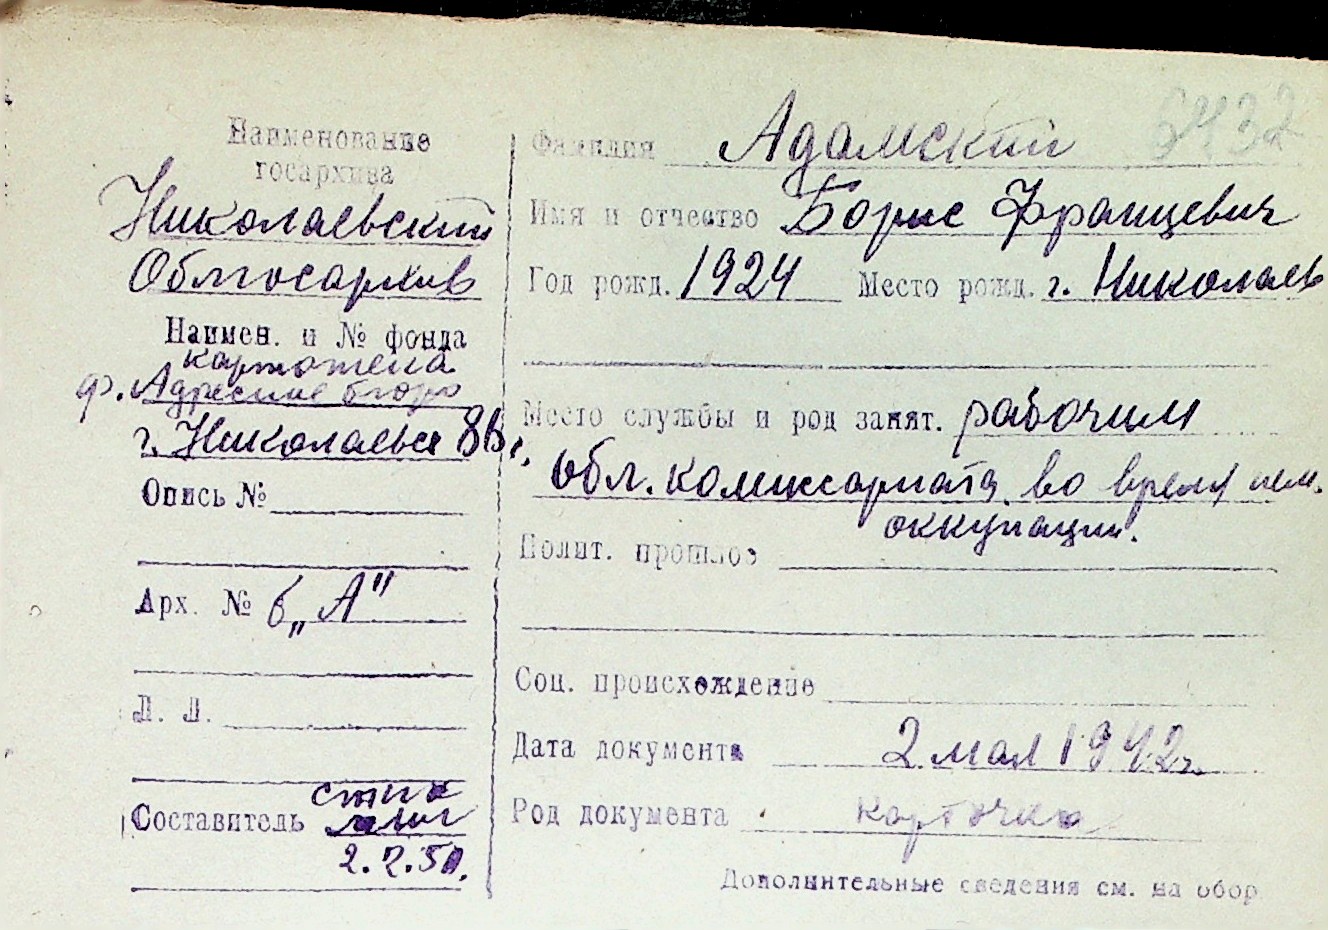 Наименование
госархива
Николаевский
Облгосархив
Наимен. и № фонда
картотека
ф. Адресное бюро
г. Николаева
Опись №
Арх. № б „А"
Л. Л.
Составитель
2.2.50.
6432
Фамилия Адамский
Имя и отчество Борис Францевич
Год рожд. 1924 Место рожд. г. Николаев
Место службы и род занят. рабочим
обл. комиссариата во время нем.
оккупации.
Полит. прошлое
Соц. происхождение
Дата документа 2 мая 1942 г.
Род документа карточка
Дополнительные сведения см. на обор